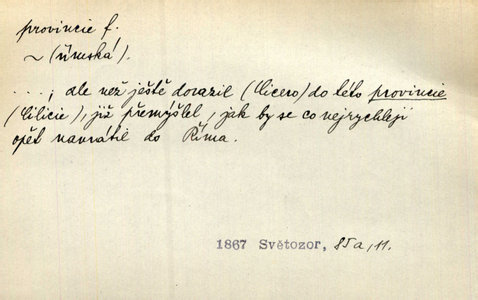 provincie f.
~ (římská).
...., ale než ještě dorazil (Cicero) do této provincie
(Cilicie), již přemýšlel, jak by se co nejrychleji
opět navrátil do Říma.
1867 Světozor, 85a, 11.